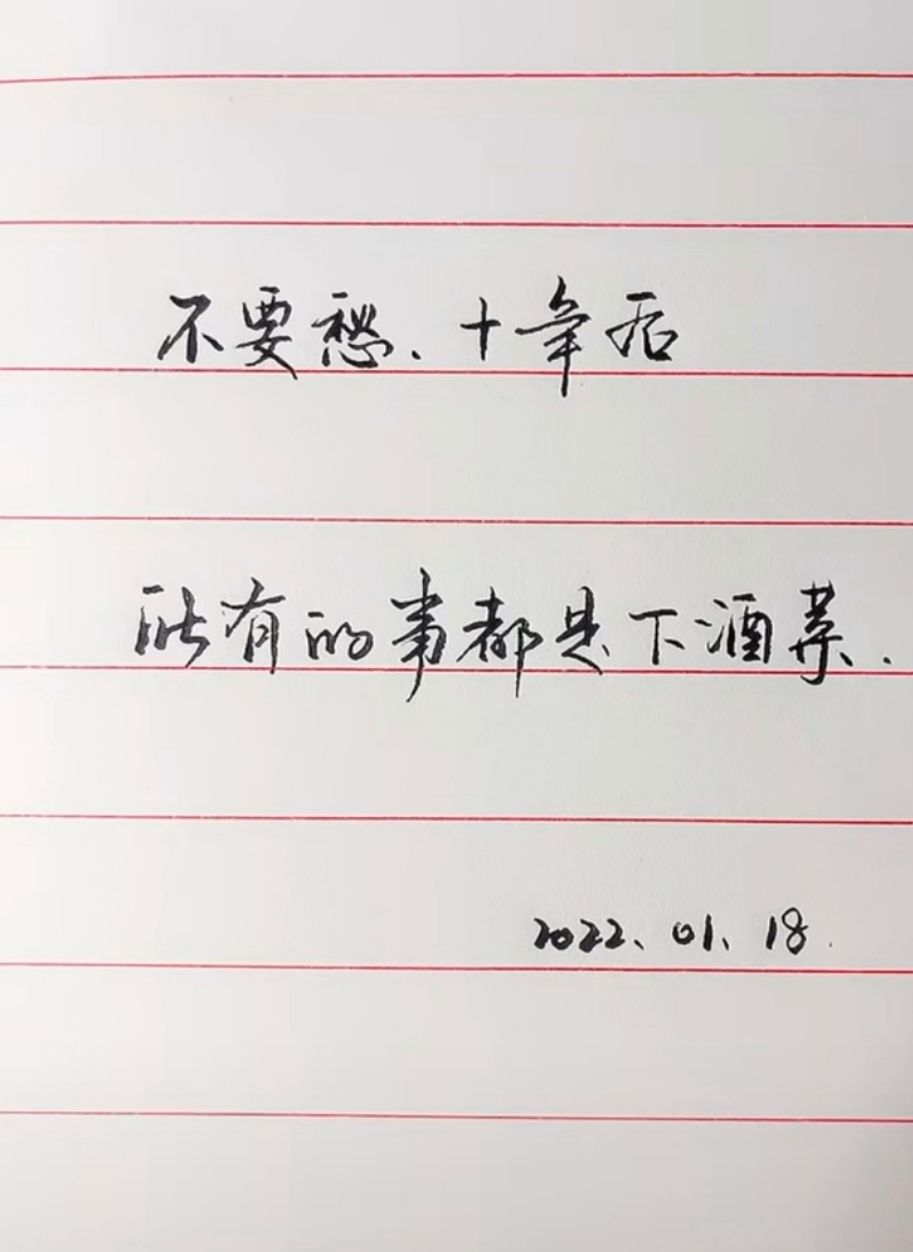 不要愁、十年后
所有的事都是下酒菜.
2022、01、18.